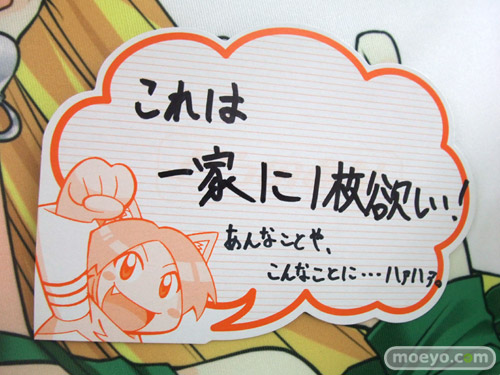 これは
一家に1枚欲しい!
あんなことや、
こんなことに…ハァハァ。
moeyo.com